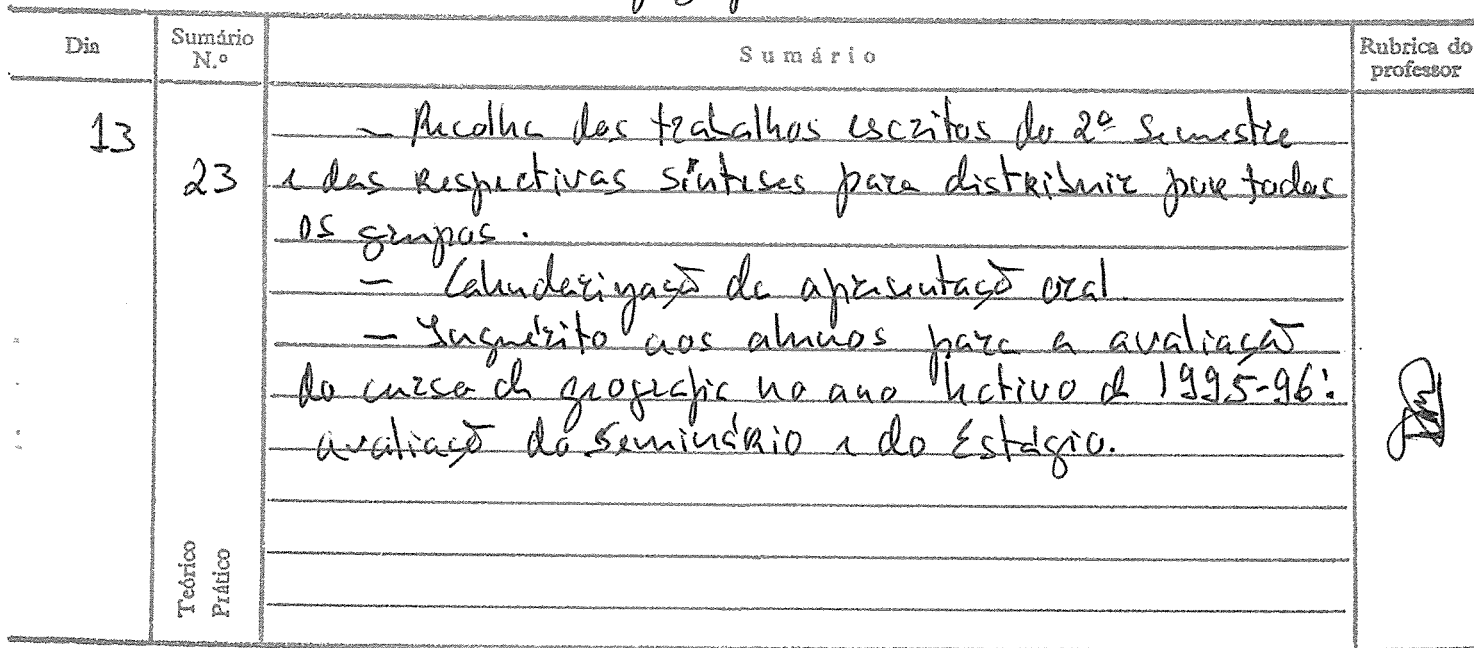 Dia
Sumário N.º
Sumário
Rubrica do professor
13
23
- Recolha dos trabalhos escritos do 2º Semestre
e das respectivas sínteses para distribuir por todos
os grupos.
- Calendarização da apresentação oral.
- Inquérito aos alunos para a avaliação
do curso de geografia no ano lectivo de 1995-96:
avaliação do Seminário e do Estágio.
Teórico
Prático